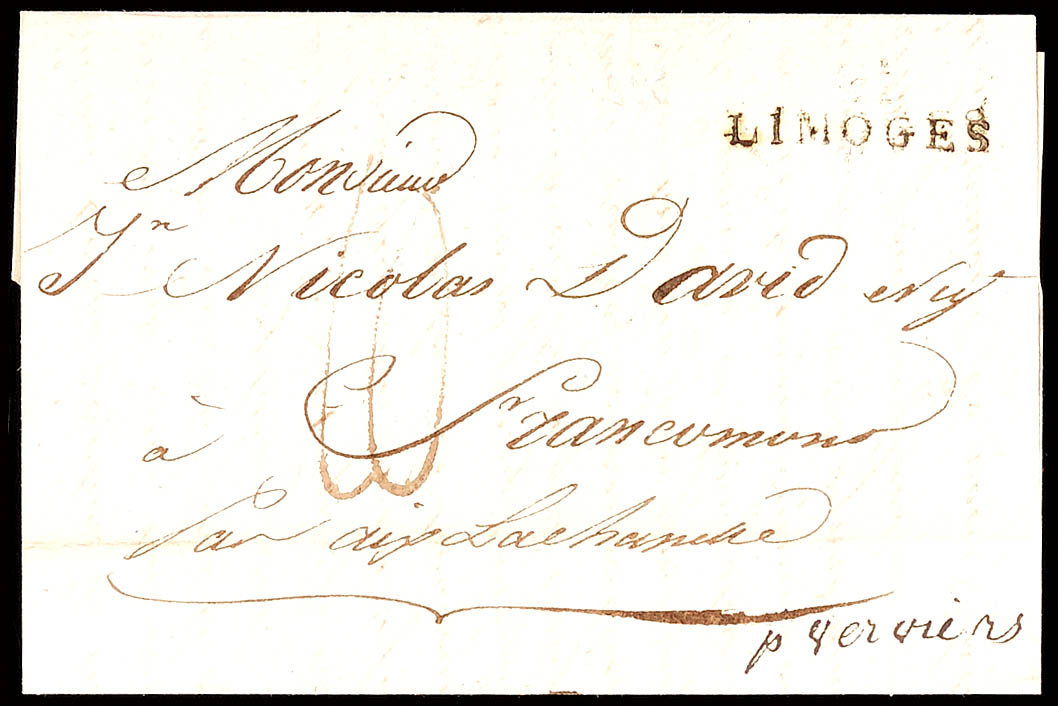 LIMOGES
Monsieur
Jn Nicolas David Negt
à Francomont
Par aix Lachapelle
p verviers